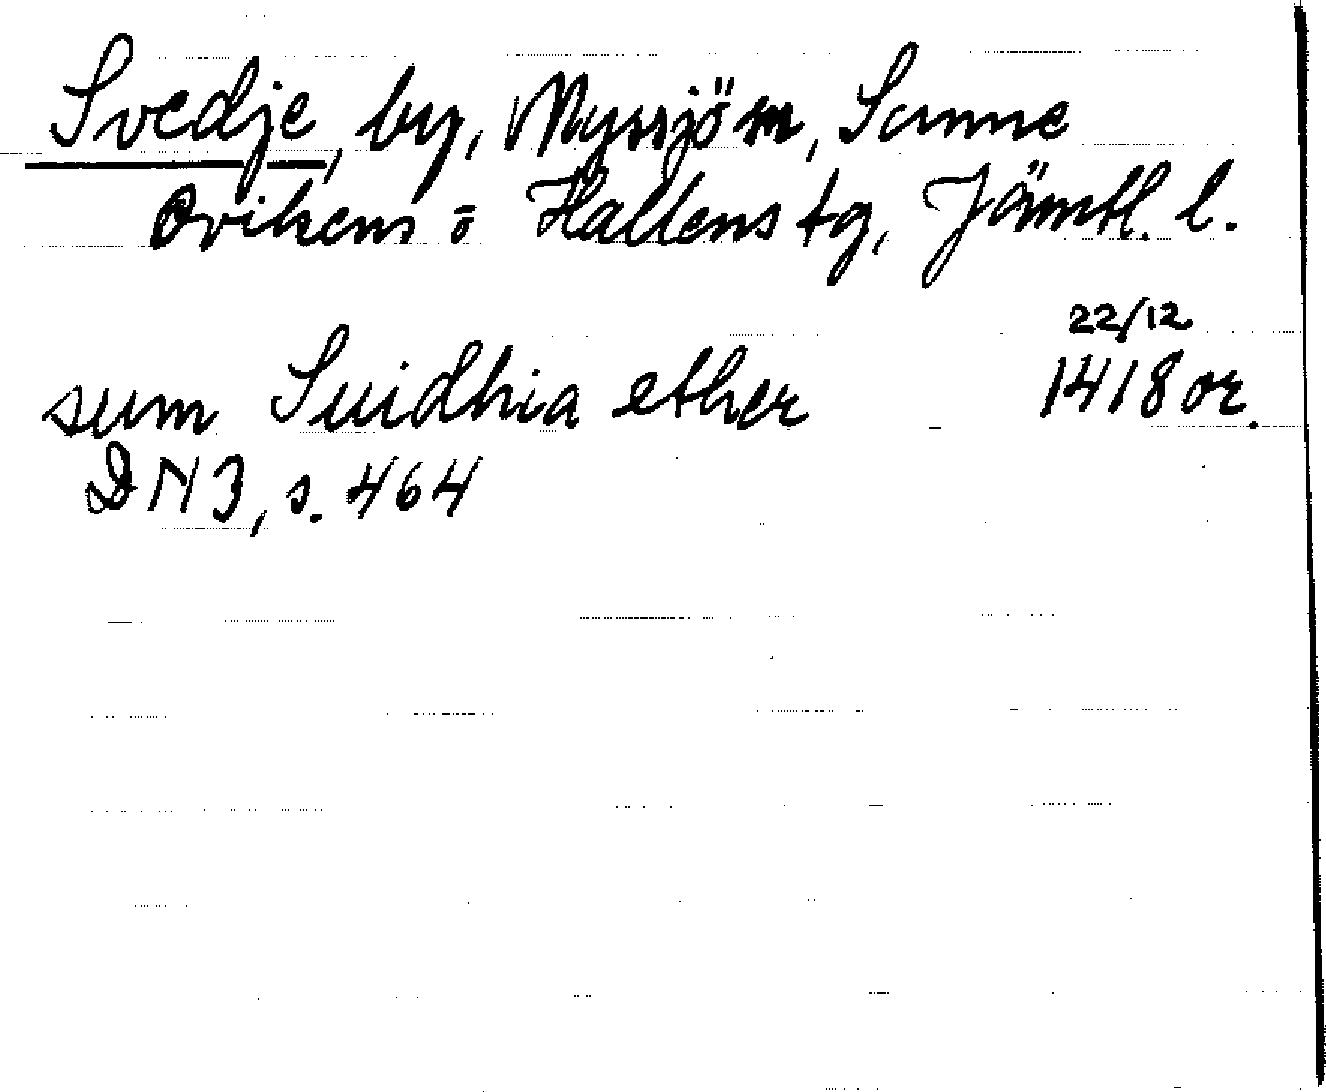 Svedje, by, Myssjö sn, Sunne
Ovikens o Hallens tg, Jämtl. l.
22/12
sum Suidhia ether 1418 or.
DN 3, s. 464